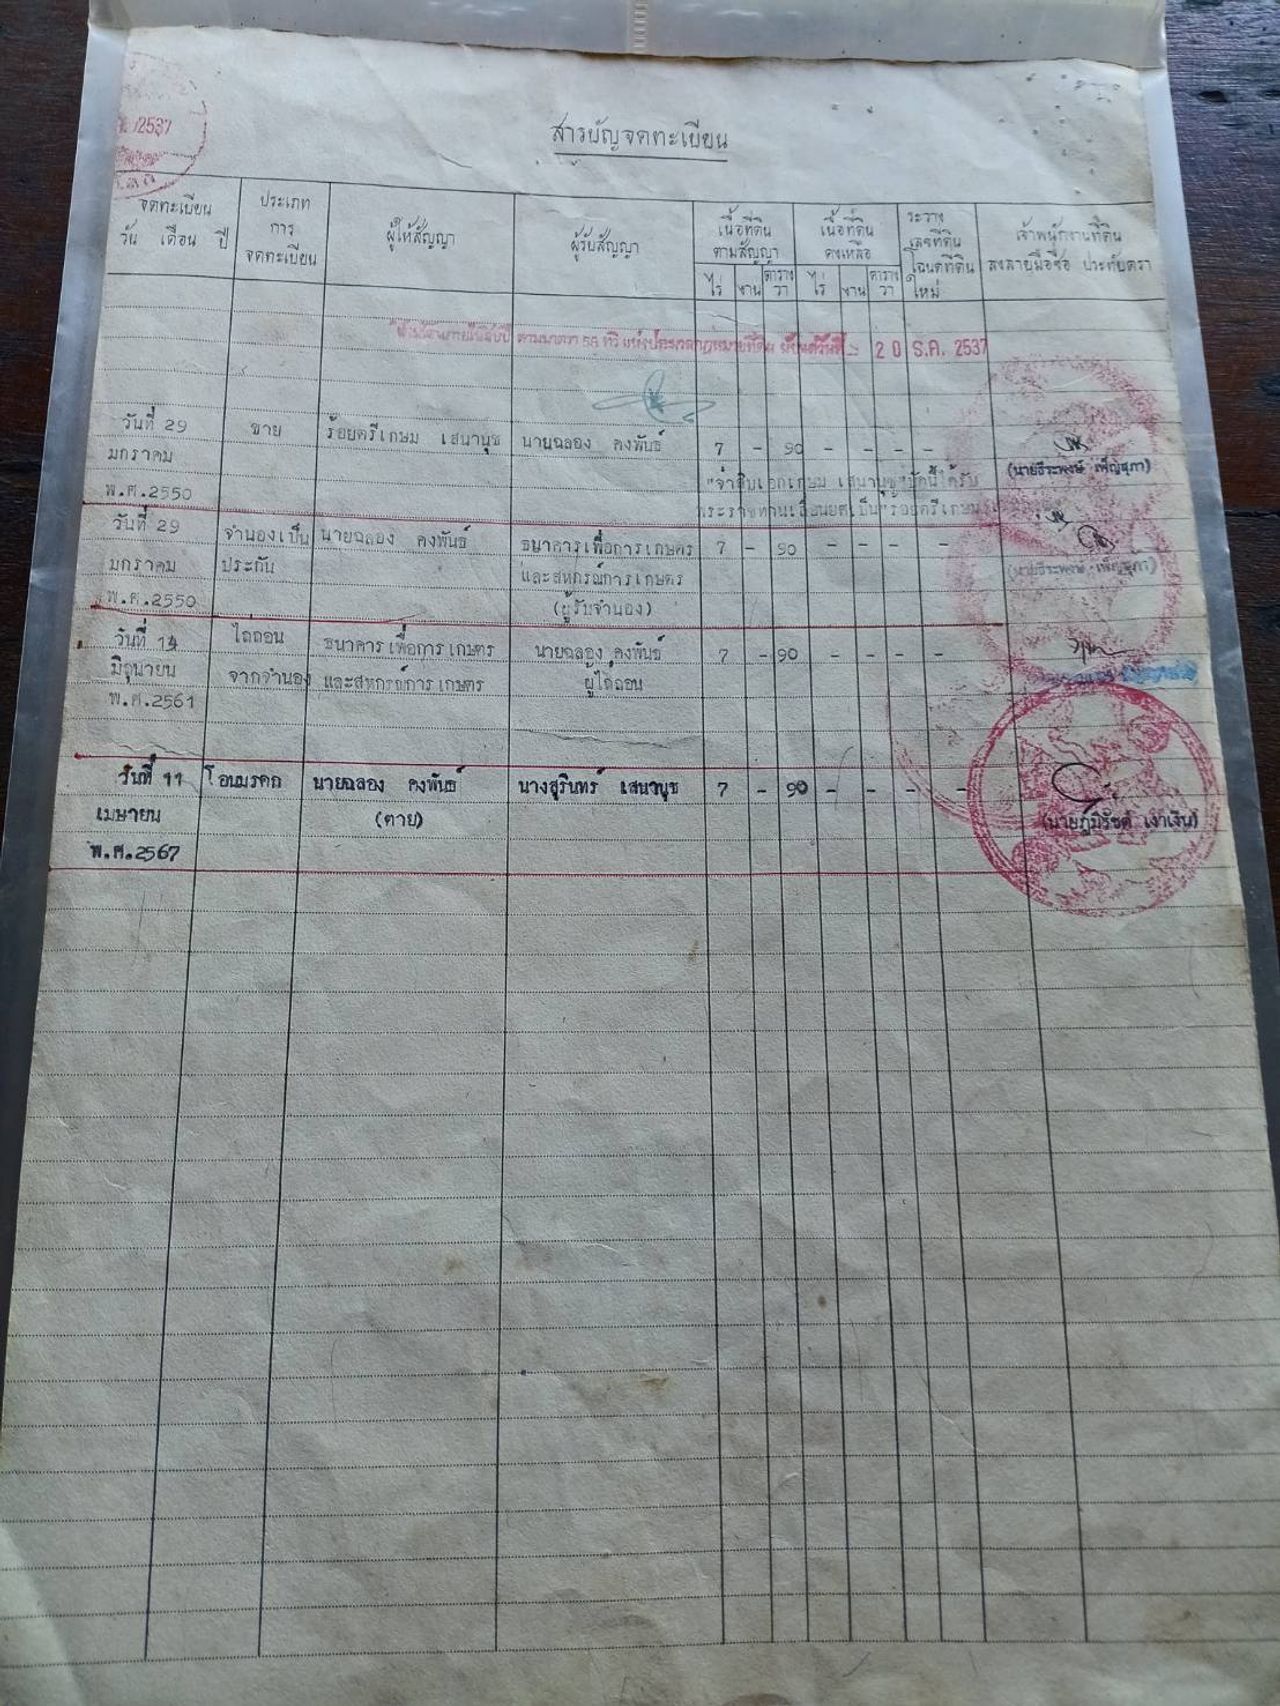 /2537
สารบัญจดทะเบียน
จดทะเบียน
วัน เดือน ปี
ประเภท
การ
จดทะเบียน
ผู้ให้สัญญา
ผู้รับสัญญา
เนื้อที่ดิน
ตามสัญญา
ไร่ งาน ตาราง
วา
เนื้อที่ดิน
คงเหลือ
ไร่ งาน ตาราง
วา
ระวาง
เลขที่ดิน
โฉนดที่ดิน
ใหม่
เจ้าพนักงานที่ดิน
ลงลายมือชื่อ ประทับตรา
ตามมาตรา 58 ทวิ แห่งประมวลกฎหมายที่ดิน ตั้งแต่วันที่ 20 ธ.ค. 2537
วันที่ 29 ขาย ร้อยตรีเกษม เสนานุช นายฉลอง คงพันธ์ 7 - 90 - - - -
มกราคม (นายธีระพงษ์ เพ็ญสุภา)
พ.ศ.2550 "จ่าสิบเอกเกษม เสนานุช" บัดนี้ได้รับ
พระราชทานเลื่อนยศเป็น "ร้อยตรีเกษม
วันที่ 29 จำนองเป็น นายฉลอง คงพันธ์ ธนาคารเพื่อการเกษตร 7 - 90 - - - -
มกราคม ประกัน และสหกรณ์การเกษตร (นายธีระพงษ์ เพ็ญสุภา)
พ.ศ.2550 (ผู้รับจำนอง)
วันที่ 14 ไถ่ถอน ธนาคารเพื่อการเกษตร นายฉลอง คงพันธ์ 7 - 90 - - - -
มิถุนายน จากจำนอง และสหกรณ์การเกษตร ผู้ไถ่ถอน
พ.ศ.2561
วันที่ 11 โอนมรดก นายฉลอง คงพันธ์ นางสุรินทร์ เสนานุช 7 - 90 - - - - -
เมษายน (ตาย) (นายภูมิรัชต์ เงาเงิน)
พ.ศ.2567